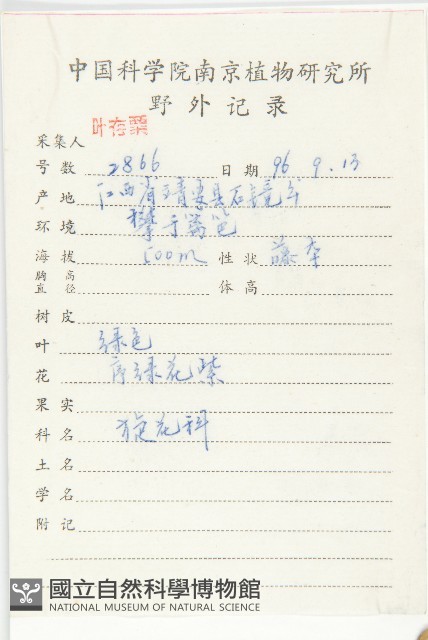 中国科学院南京植物研究所
野外记录
采集人 叶存粟
号数 2866 日期 96 9.13
产地 江西省靖安县石境乡
环境 攀于篱笆
海拔 500m 性状 藤本
胸高直径 体高
树皮
叶 绿色
花 序绿花紫
果实
科名 旋花科
土名
学名
附记
國立自然科學博物館
NATIONAL MUSEUM OF NATURAL SCIENCE